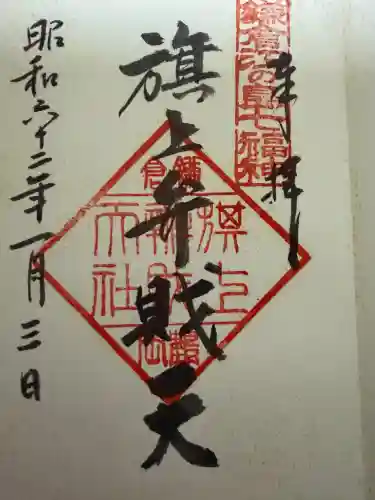 鎌倉江の島七福神
奉拝
旗上弁財天
鎌倉
旗上
辨財
天社
鶴岡
昭和六十二年一月三日